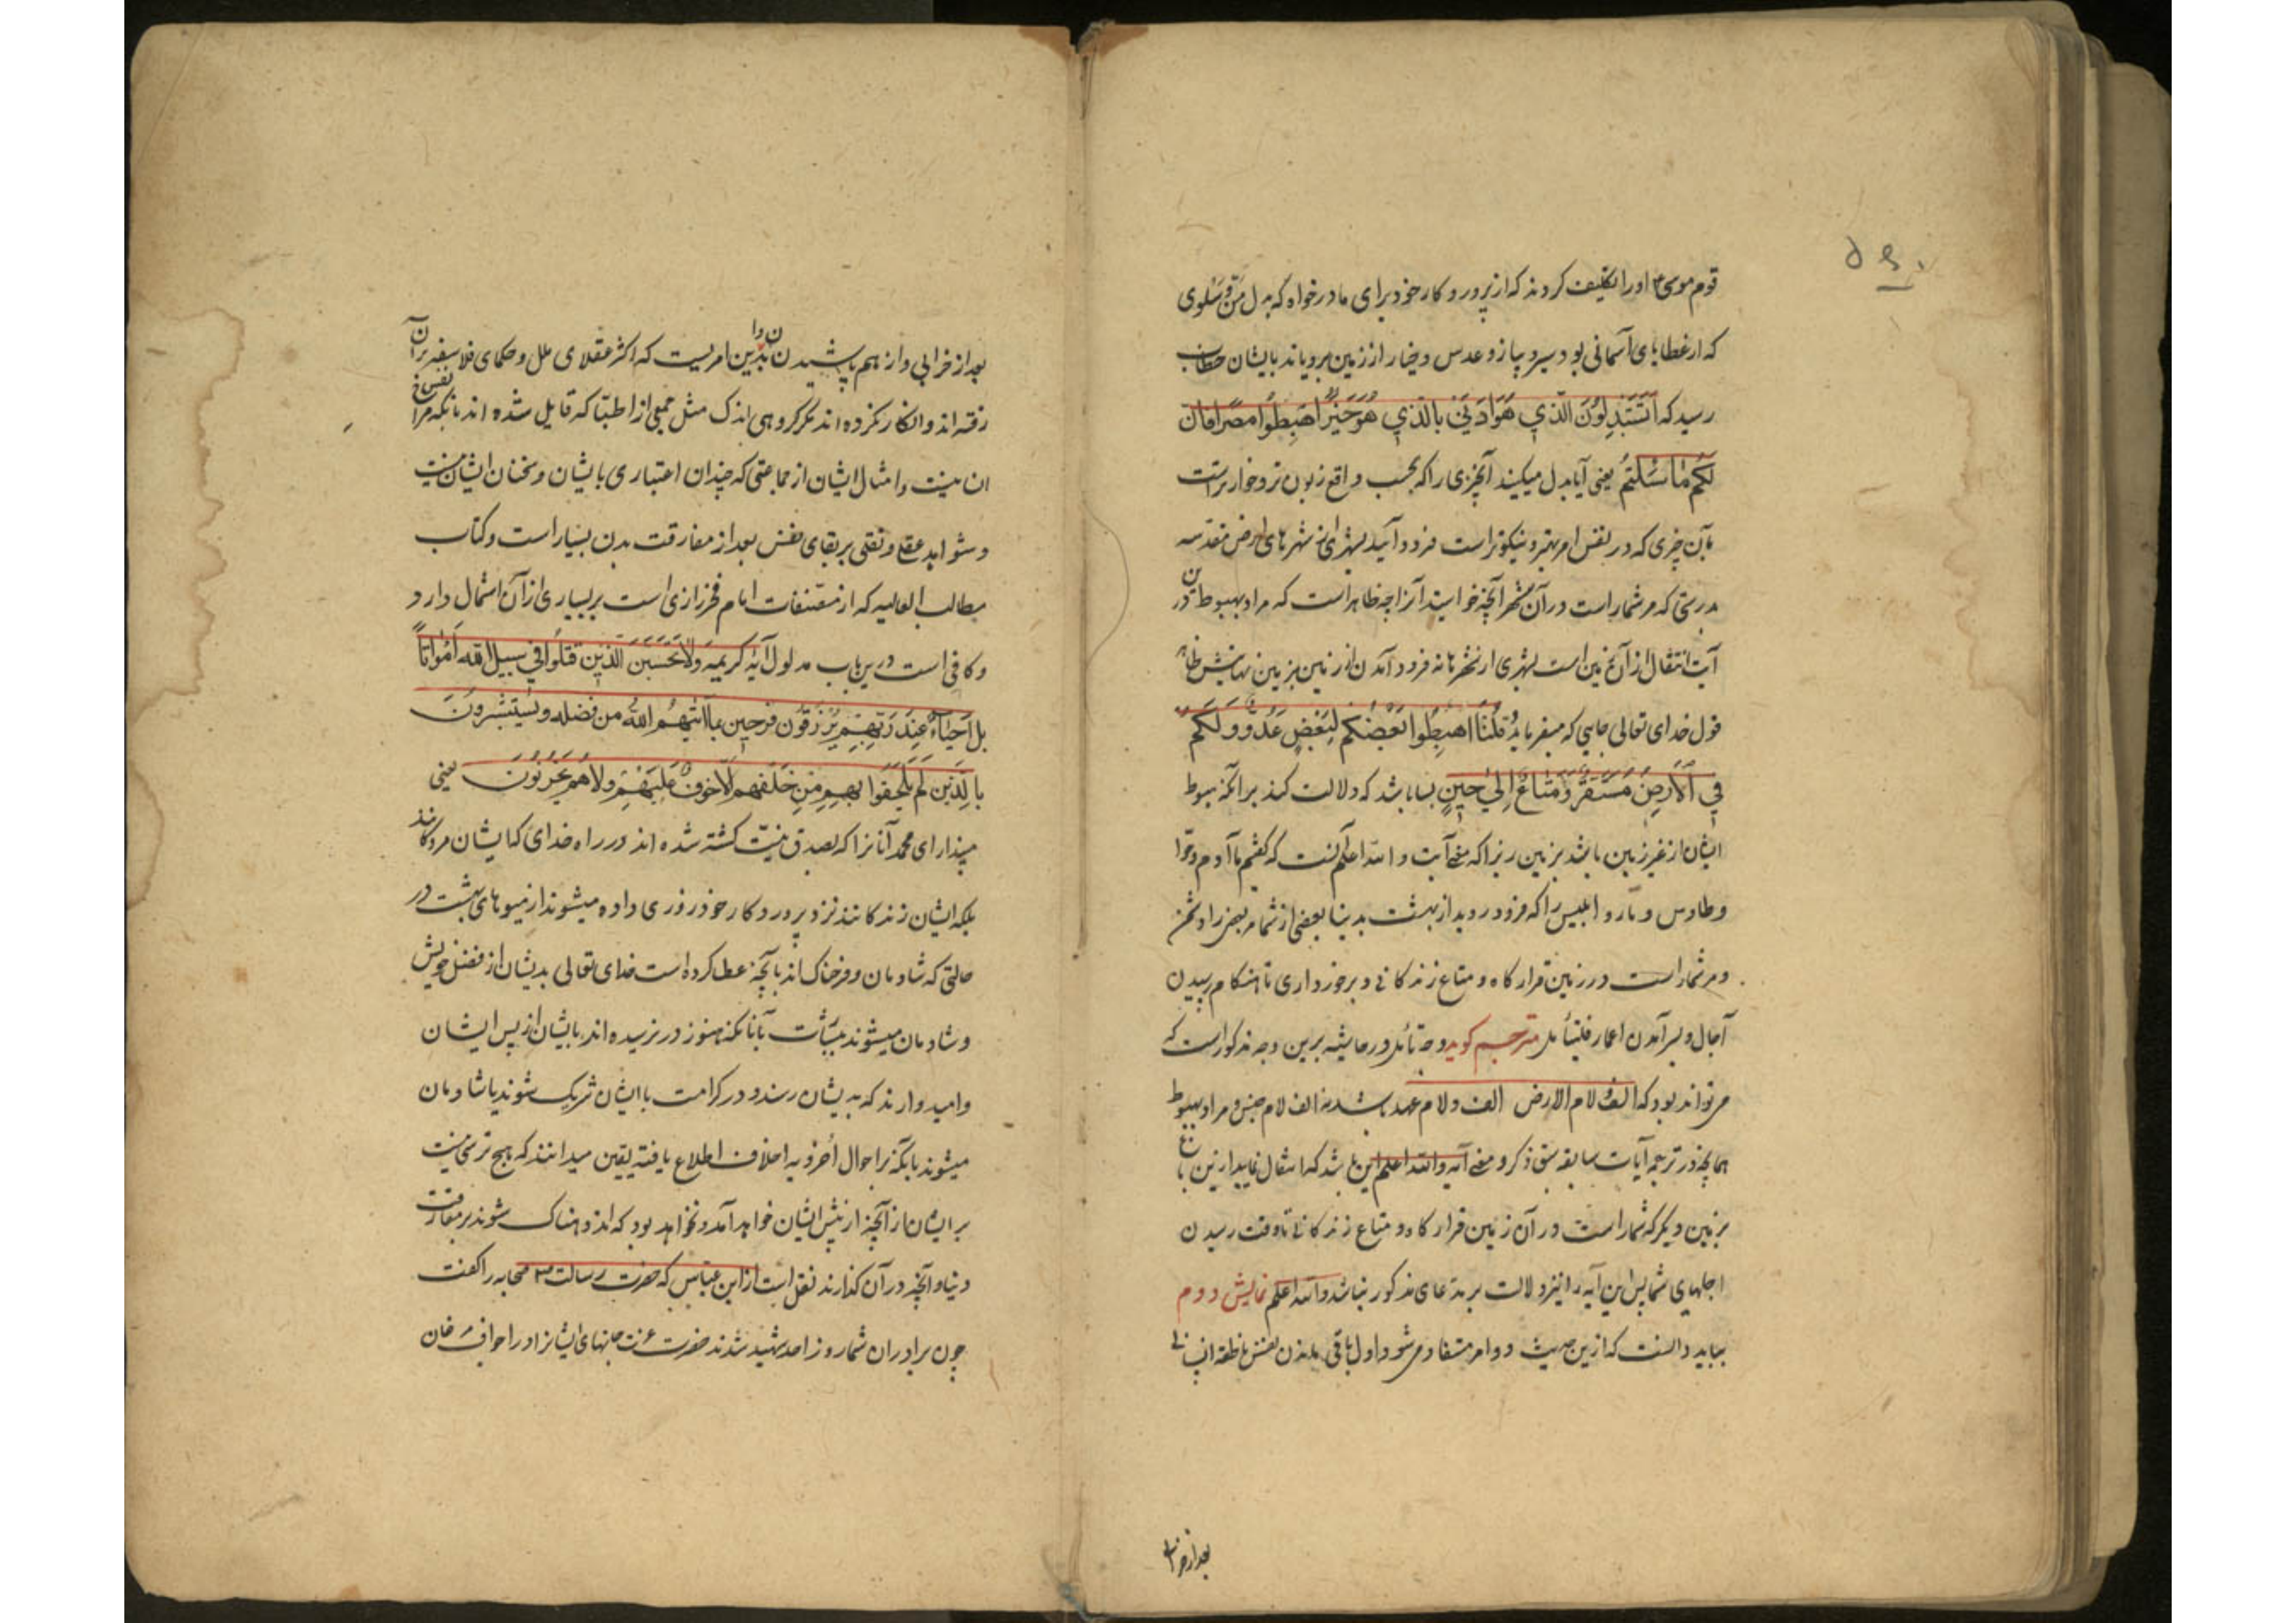 قوم موسی ع اورا تکلیف کردند که از پرورد کار خود برای ما درخواه که بدل من و سلوی
که از عطایای آسمانی بود سیر و پیاز و عدس و خیار از زمین برویاند بایشان خطاب
رسید که اَتَسْتَبْدِلُونَ الَّذي هُوَ اَدْنی بِالَّذي هُوَ خَیْرٌ اهْبِطُوا مِصْرًا فَاِنَّ
لَکُمْ مٰا سَئَلْتُمْ یعنی آیا بدل میکنید آنچیزی را که بحسب واقع زبون تر و خوارتر است
بآن چیزی که در نفس امر بهتر و نیکوتر است فرود آیید بشهری از شهرهای ارض مقدسه
بدرستی که مر شماراست در آن شهر آنچه خواستید آنرا چه ظاهر است که مراد بهبوط درین
آیت انتقال از آن زمین است بشهری از شهرها نه فرود آمدن از زمین بزمین نهایتش ظاهر
قول خدای تعالی جایی که میفرماید قُلْنَا اهْبِطُوا بَعْضُکُمْ لِبَعْضٍ عَدُوٌّ وَ لَکُمْ
فِي الْاَرْضِ مُسْتَقَرٌّ وَ مَتٰاعٌ اِلیٰ حینٍ بسا باشد که دلالت کند برانکه هبوط
ایشان از غیر زمین باشد بزمین زیرا که معنی آیت والله اعلم آنست که گفتیم ما آدم و حوا
و طاوس و مار و ابلیس را که فرود روید از بهشت بدنیا بعضی از شما مر بعضی را دشمن
و مر شماراست در زمین قرار کاه و متاع زندکانی و برخورداری تا هنکام رسیدن
آجال و بسر آمدن اعمار فلیتأمل مترجم کوید وجه تأمل در حاشیه برین وجه مذکوراست که
می تواند بود که الف لام الارض الف و لام عهد باشد نه الف لام جنس و مراد بهبوط
همانچه در ترجمه آیات سابقه سبق ذکر و معنی آیه والله اعلم این باشد که انتقال نمایید از زمین باغ
بزمین دیکر که شماراست در آن زمین قرار کاه و متاع زندکانی تا وقت رسیدن
اجلهای شما پس این آیه را نیز دلالت بر مدعای مذکور نباشد والله اعلم نمایش دوم
بباید دانست که ازین حدیث دو امر مستفاد می شود اول باقی ماندن نفس ناطقه انسانی
بعد از خرابی
بعد از خرابی و از هم پاشیدن بدن و این امریست که اکثر عقلای ملل و حکمای فلاسفه بران
رفته اند و انکار نکرده اند مکر کروهی اندک مثل جمعی از اطبا که قایل شده اند بانکه نفس مزاج
ان نیست و امثال ایشان از جماعتی که چندان اعتباری بایشان و سخنان ایشان نیست
و شواهد عقلی و نقلی بر بقای نفس بعد از مفارقت بدن بسیار است و کتاب
مطالب العالیه که از مصنفات امام فخر رازی است بر بسیاری از آن اشتمال دارد
و کافی است درین باب مدلول آیه کریمه وَلاٰ تَحْسَبَنَّ الَّذینَ قُتِلُوا فی سَبیلِ اللهِ اَمْوٰاتاً
بَلْ اَحْیٰاءٌ عِنْدَ رَبِّهِمْ یُرْزَقُونَ فَرِحینَ بِمٰا آتٰیهُمُ اللهُ مِنْ فَضْلِهِ وَ یَسْتَبْشِرُونَ
بِالَّذینَ لَمْ یَلْحَقُوا بِهِمْ مِنْ خَلْفِهِمْ اَلّاٰ خَوْفٌ عَلَیْهِمْ وَلاٰ هُمْ یَحْزَنُونَ یعنی
مپندار ای محمد آنانرا که بصدق نیّت کشته شده اند در راه خدای که ایشان مردکانند
بلکه ایشان زندکانند نزد پرورد کار خود روزی داده میشوند از میوهای بهشت در
حالتی که شادمان و فرحناک اند بآنچه عطا کرده است خدای تعالی بدیشان از فضل خویش
و شادمان میشوند ببشارت بآنانکه هنوز در نرسیده اند بایشان از پس ایشان
و امیدوارند که بدیشان رسند و در کرامت با ایشان شریک شوند یا شادمان
میشوند بانکه بر احوال اخرویه اخلاف اطلاع یافته یقین میدانند که هیچ ترسی نیست
بر ایشان از آنچه از پیش ایشان خواهد آمد و نخواهد بود که اندوهناک شوند بر مفارقت
دنیا و آنچه در آن کذارند نقل است از ابن عباس که حضرت رسالت ص صحابه را گفت
چون برادران شما روز احد شهید شدند حضرت عزت جانهای ایشانرا در اجواف مرغان